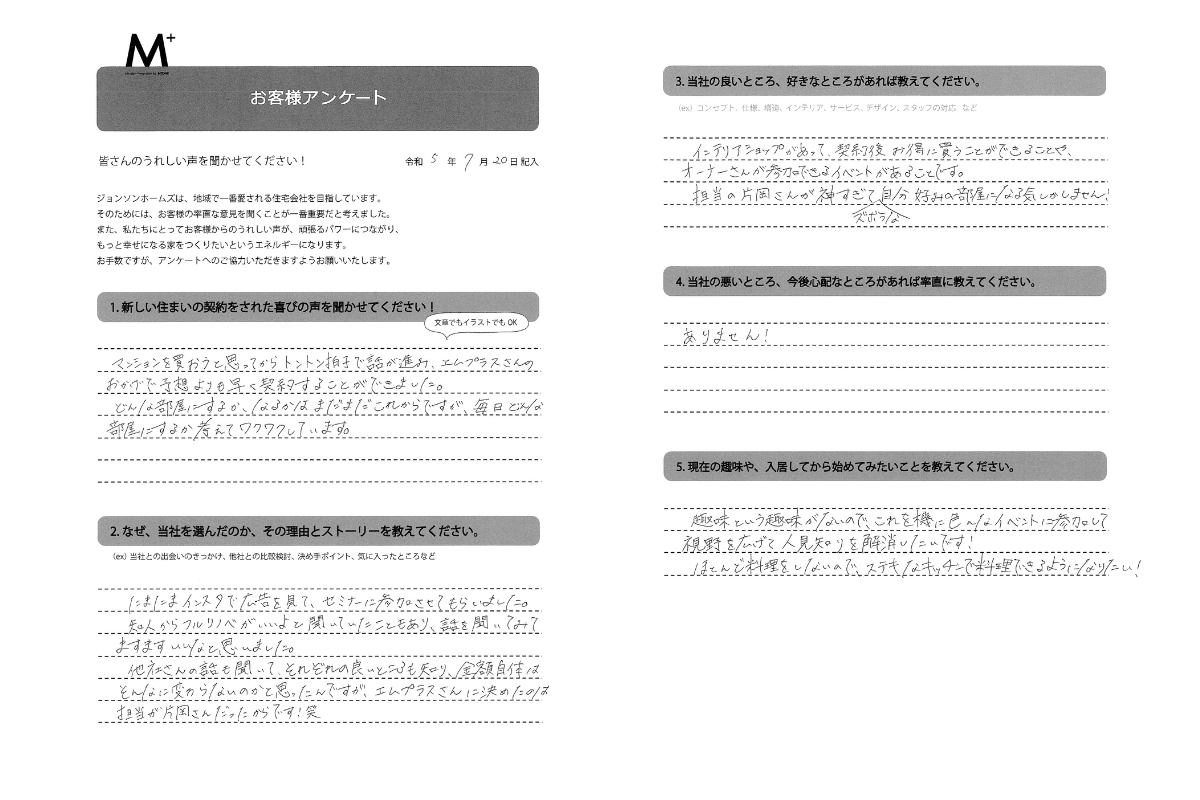 M+
お客様アンケート
皆さんのうれしい声を聞かせてください！
令和 5 年 7 月 20 日記入
ジョンソンホームズは、地域で一番愛される住宅会社を目指しています。
そのためには、お客様の率直な意見を聞くことが一番重要だと考えました。
また、私たちにとってお客様からのうれしい声が、頑張るパワーにつながり、
もっと幸せになる家をつくりたいというエネルギーになります。
お手数ですが、アンケートへのご協力いただきますようお願いいたします。
1. 新しい住まいの契約をされた喜びの声を聞かせてください！
文章でもイラストでも OK
マンションを買おうと思ってからトントン拍子で話が進み、エムプラスさんの
おかげで予想よりも早く契約することができました。
どんな部屋にするか、なるかはまだまだこれからですが、毎日どんな
部屋にするか考えてワクワクしています。
2. なぜ、当社を選んだのか、その理由とストーリーを教えてください。
（ex）当社との出会いのきっかけ、他社との比較検討、決め手ポイント、気に入ったところなど
たまたまインスタで広告を見て、セミナーに参加させてもらいました。
知人からフルリノベがいいよと聞いていたこともあり、話を聞いてみて
ますますいいなと思いました。
他社さんの話も聞いて、それぞれの良いところも知り、金額自体は
そんなに変わらないのかと思ったんですが、エムプラスさんに決めたのは
担当が片岡さんだったからです！笑
3. 当社の良いところ、好きなところがあれば教えてください。
（ex）コンセプト、仕様、構造、インテリア、サービス、デザイン、スタッフの対応 など
インテリアショップがあって、契約後お得に買うことができることや、
オーナーさんが参加できるイベントがあることです。
担当の片岡さんが神すぎて自分好みの部屋になる気しかしません！
ズボラな
4. 当社の悪いところ、今後心配なところがあれば率直に教えてください。
ありません！
5. 現在の趣味や、入居してから始めてみたいことを教えてください。
趣味という趣味がないので、これを機に色んなイベントに参加して
視野を広げて人見知りを解消したいです！
ほとんど料理をしないので、ステキなキッチンで料理できるようになりたい！